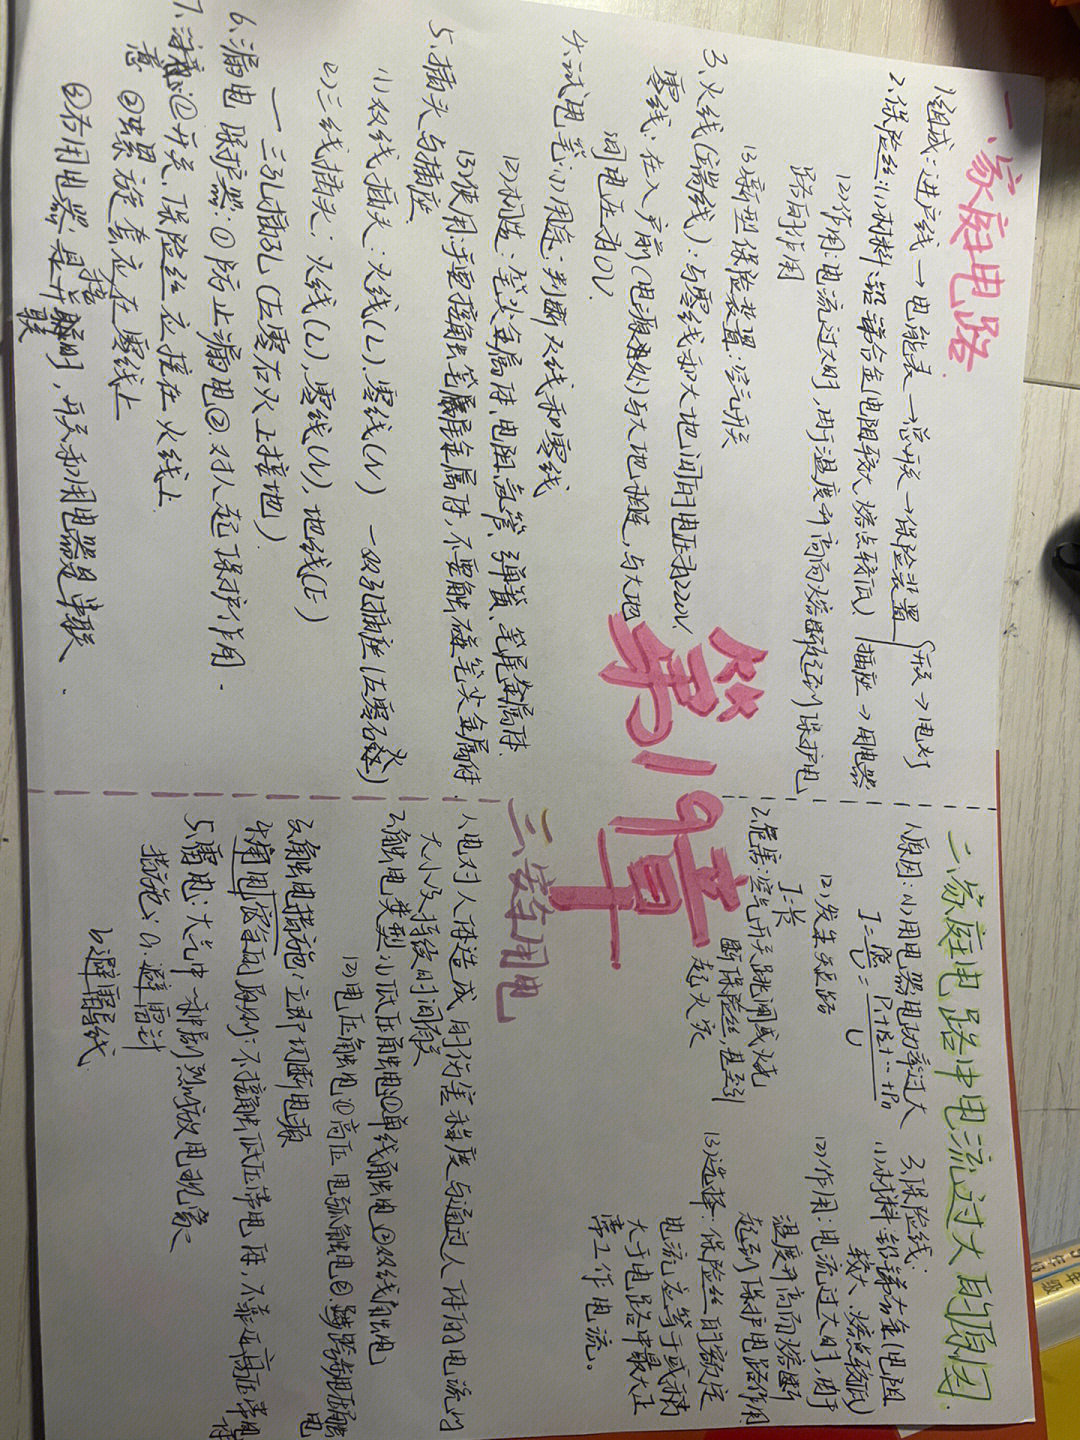 第19章
一、家庭电路
1.组成：进户线→电能表→总开关→保险装置
开关→电灯
插座→用电器
2.保险丝：(1)材料：铅锑合金(电阻较大、熔点较低)
(2)作用：电流过大时，由于温度升高而熔断,起到保护电
路的作用
(3)新型保险装置：空气开关
3.火线(端线)：与零线和大地间的电压为220V
零线：在入户前(电源处)与大地相连，与大地
间电压为0V.
4.试电笔：(1)用途：判断火线和零线
(2)构造：笔尖金属体、电阻、氖管、弹簧、笔尾金属体.
(3)使用：手要接触笔尾金属体，不要触碰笔尖金属体.
5.插头与插座
(1)双线插头：火线(L).零线(N) 一双孔插座(左零右火)
(2)三线插头：火线(L)、零线(N)、地线(E)
一三孔插孔(左零右火上接地).
6.漏电保护器：①防止漏电②.对人起保护作用.
7.注意
①开关、保险丝应接在火线上.
②螺旋套应接在零线上
③各用电器是并联，开关和用电器是串联.
二、家庭电路中电流过大的原因
1.原因：(1)用电器电功率过大
I=P总/U=P1+P2+…+Pn/U
(2)发生短路
2.危害：空气开关跳闸或烧
断保险丝，甚至引
起火灾
3.保险丝：
(1)材料：铅锑合金(电阻
较大、熔点较低)
(2)作用：电流过大时，由于
温度升高而熔断
起到保护电路作用
(3)选择：保险丝的额定
电流应等于或稍
大于电路中最大正
常工作电流。
三、安全用电
1.电对人体造成的伤害程度与通过人体的电流的
大小及持续时间有关
2.触电类型：(1)低压触电①单线触电②双线触电
(2)高压触电①高压电弧触电②.跨步电压触电
3.触电措施：立即切断电源
4.用电安全原则：不接触低压带电体，不靠近高压带电体
5.雷电：大气中一种剧烈的放电现象
措施：a.避雷针
b.避雷线.